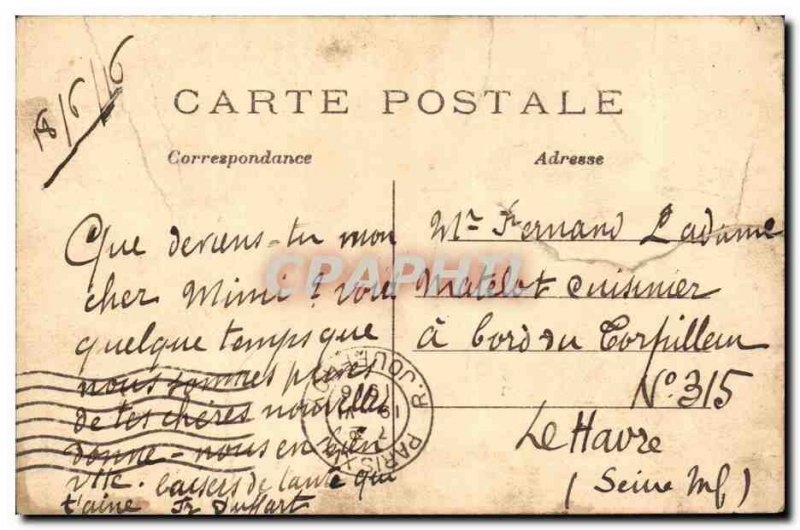 18/6/16
CARTE POSTALE
Correspondance
Adresse
Que deviens-tu mon
cher Mimi? voici
quelque temps que
nous sommes privés
de tes chères nouvelles
donne-nous en bien
vite. baisers de ta tante qui
t'aime
Mr Fernand Ladame
Matelot cuisinier
à bord du Torpilleur
No 315
Le Havre
(Seine Inf)
CPAPHIL
PARIS
R. JOUFFROY